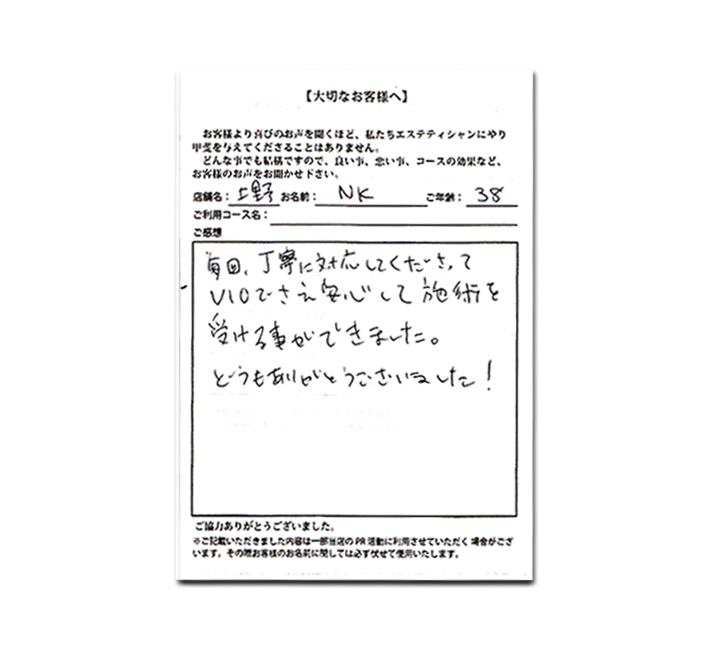 【大切なお客様へ】
お客様より喜びのお声を聞くほど、私たちエステティシャンにやり
甲斐を与えてくださることはありません。
どんな事でも結構ですので、良い事、悪い事、コースの効果など、
お客様のお声をお聞かせ下さい。
店舗名：上野 お名前：NK ご年齢：38
ご利用コース名：
ご感想
毎回、丁寧に対応してくださって
VIOでさえ安心して施術を
受ける事ができました。
どうもありがとうございました！
ご協力ありがとうございました。
※ご記載いただきました内容は一部当店のPR活動に利用させていただく場合がござ
います。その際お客様のお名前に関しては必ず伏せて使用いたします。